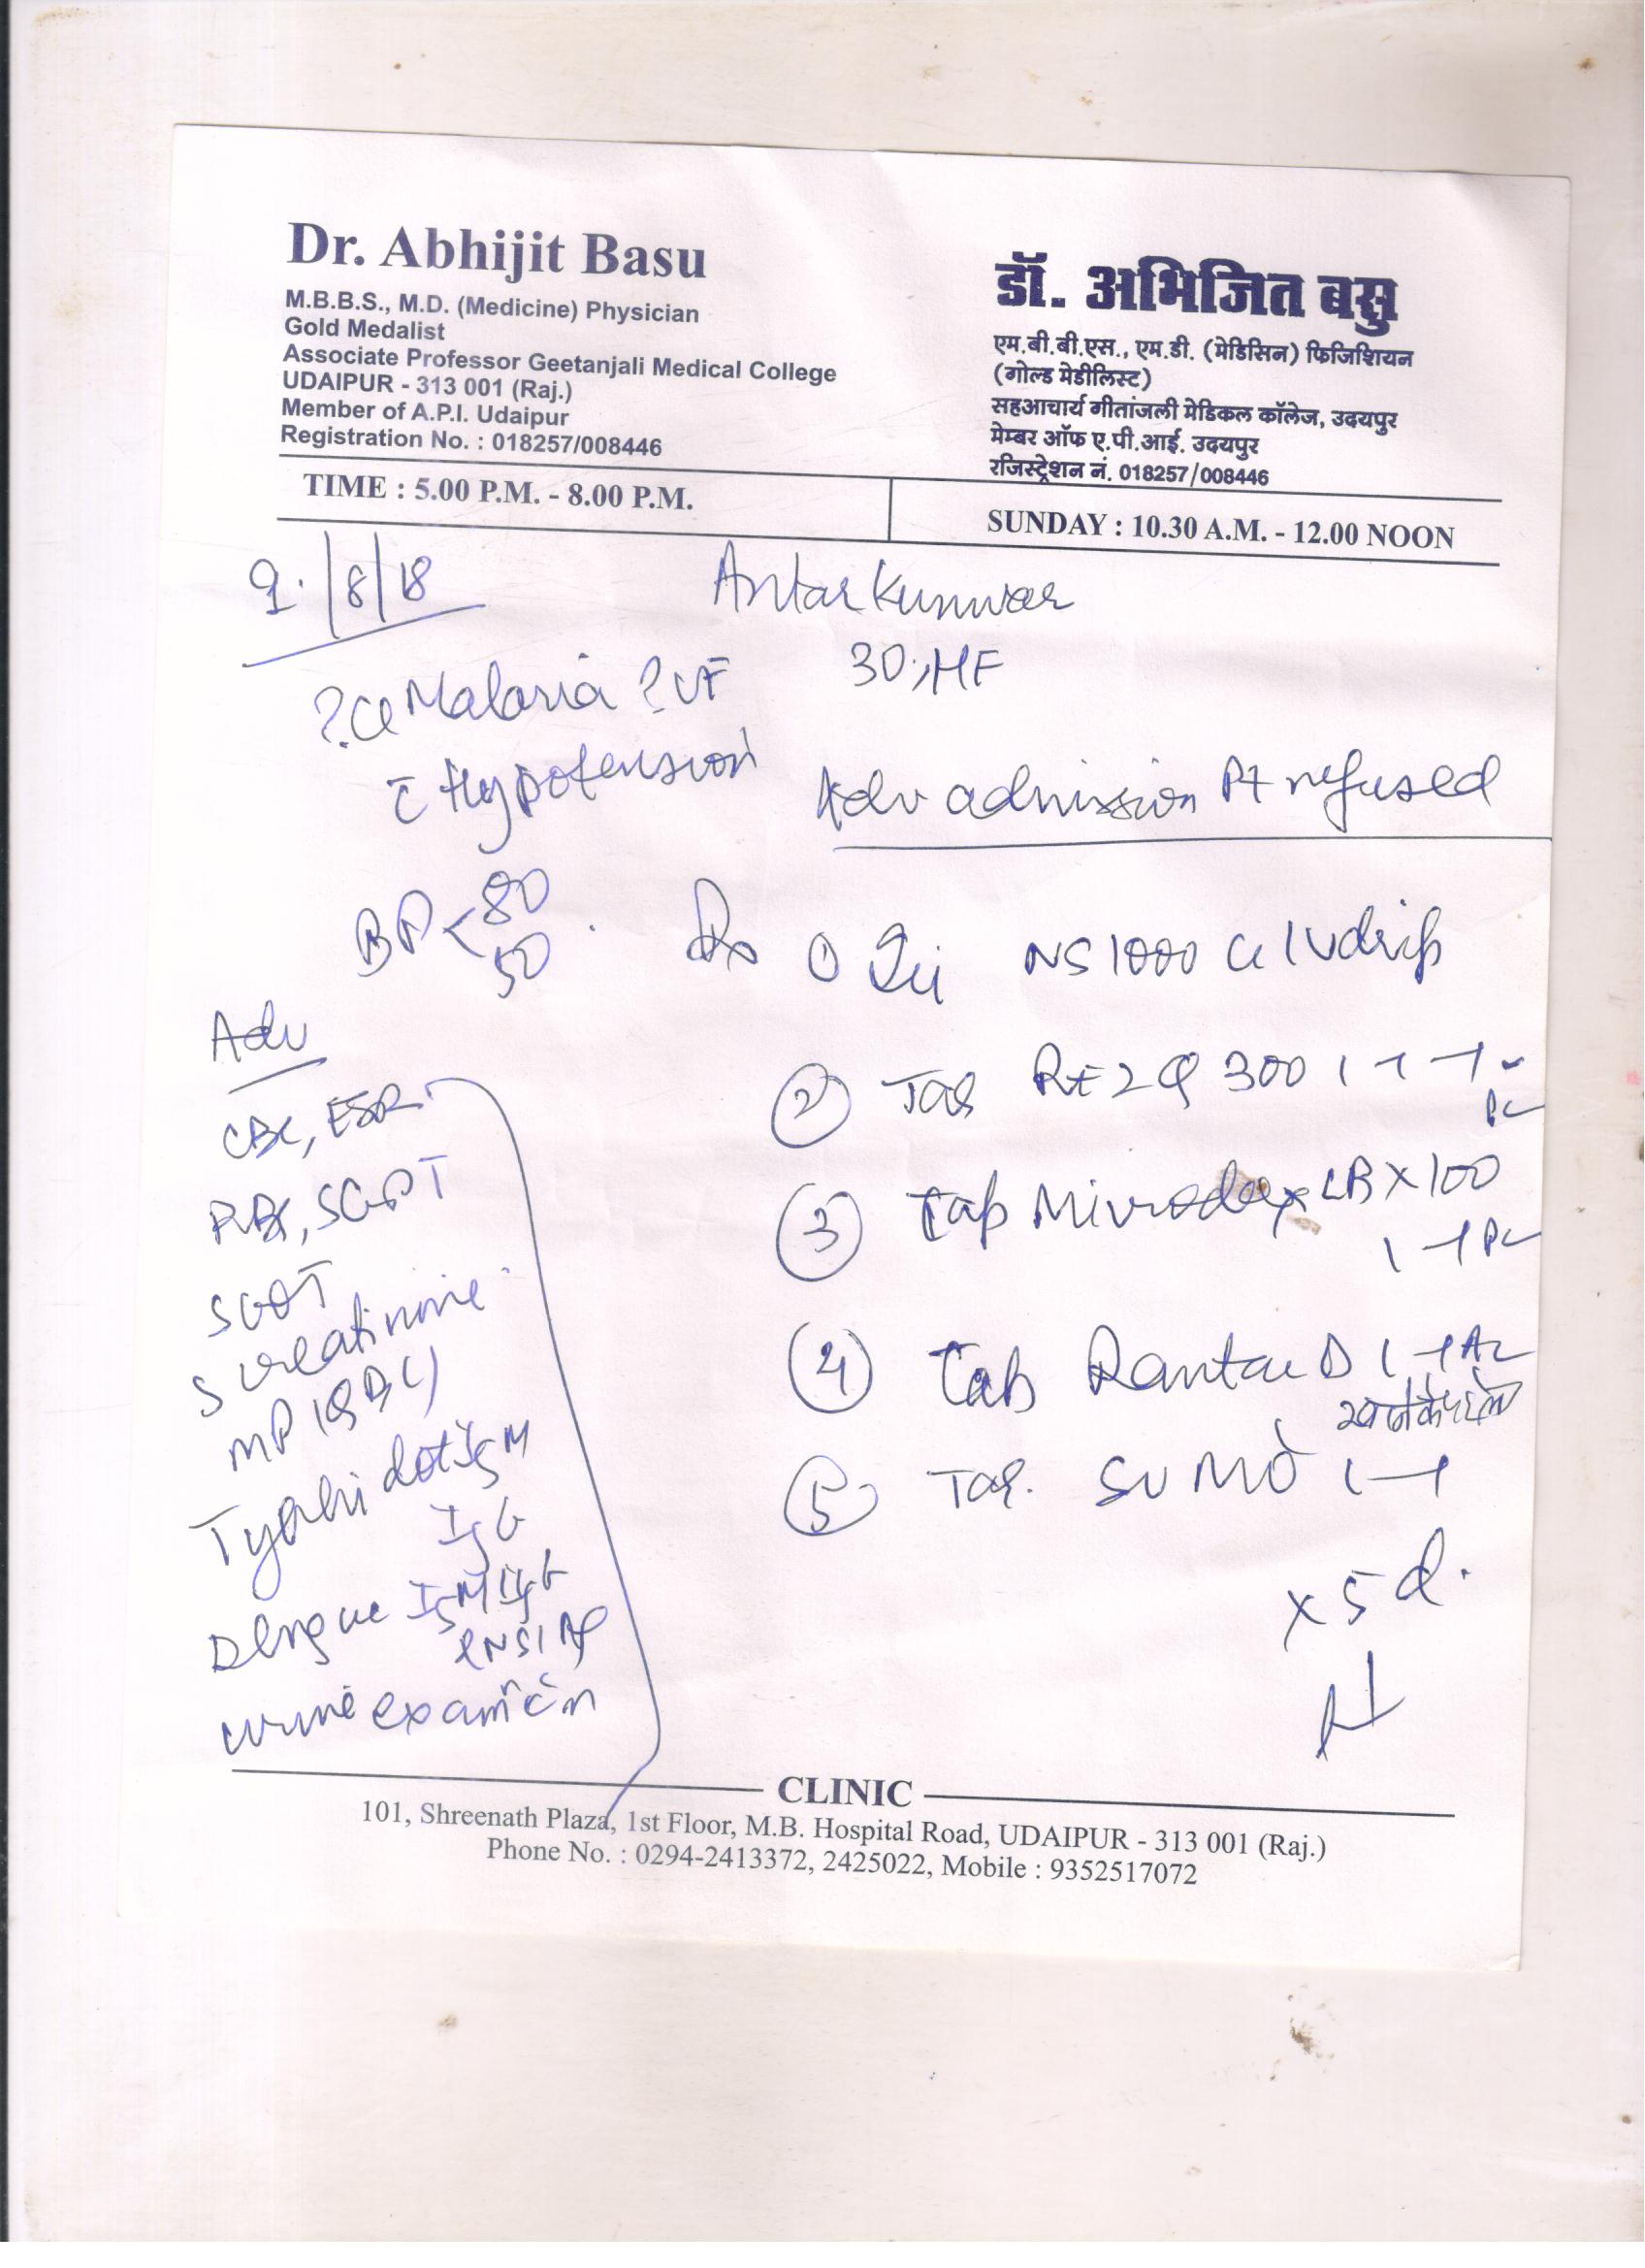 Dr. Abhijit Basu
M.B.B.S., M.D. (Medicine) Physician
Gold Medalist
Associate Professor Geetanjali Medical College
UDAIPUR - 313 001 (Raj.)
Member of A.P.I. Udaipur
Registration No. : 018257/008446
डॉ. अभिजित बसु
एम.बी.बी.एस., एम.डी. (मेडिसिन) फिजिशियन
(गोल्ड मेडीलिस्ट)
सहआचार्य गीतांजली मेडिकल कॉलेज, उदयपुर
मेम्बर ऑफ ए.पी.आई. उदयपुर
रजिस्ट्रेशन नं. 018257/008446
TIME : 5.00 P.M. - 8.00 P.M.
SUNDAY : 10.30 A.M. - 12.00 NOON
9/8/18
Antar Kunwar
30, HF
Malaria ? VF
Hypotension
Adv admission Pt refused
BP < 80
50
Rx
① NS 1000 cc IV drip
② Tab 300 1-1-1
PC
③ Tab LB X 100
1-1 PC
④ Tab Rantac D 1-1 AC
⑤ Tab. SUMO 1-1
x 5 d.
Adv
CBC, ESR
RBS, SGPT
SGOT
S creatinine
MP (QBC)
Typhi dot IgM
IgG
Dengue IgM IgG
& NS1 Ag
urine
CLINIC
101, Shreenath Plaza, 1st Floor, M.B. Hospital Road, UDAIPUR - 313 001 (Raj.)
Phone No. : 0294-2413372, 2425022, Mobile : 9352517072